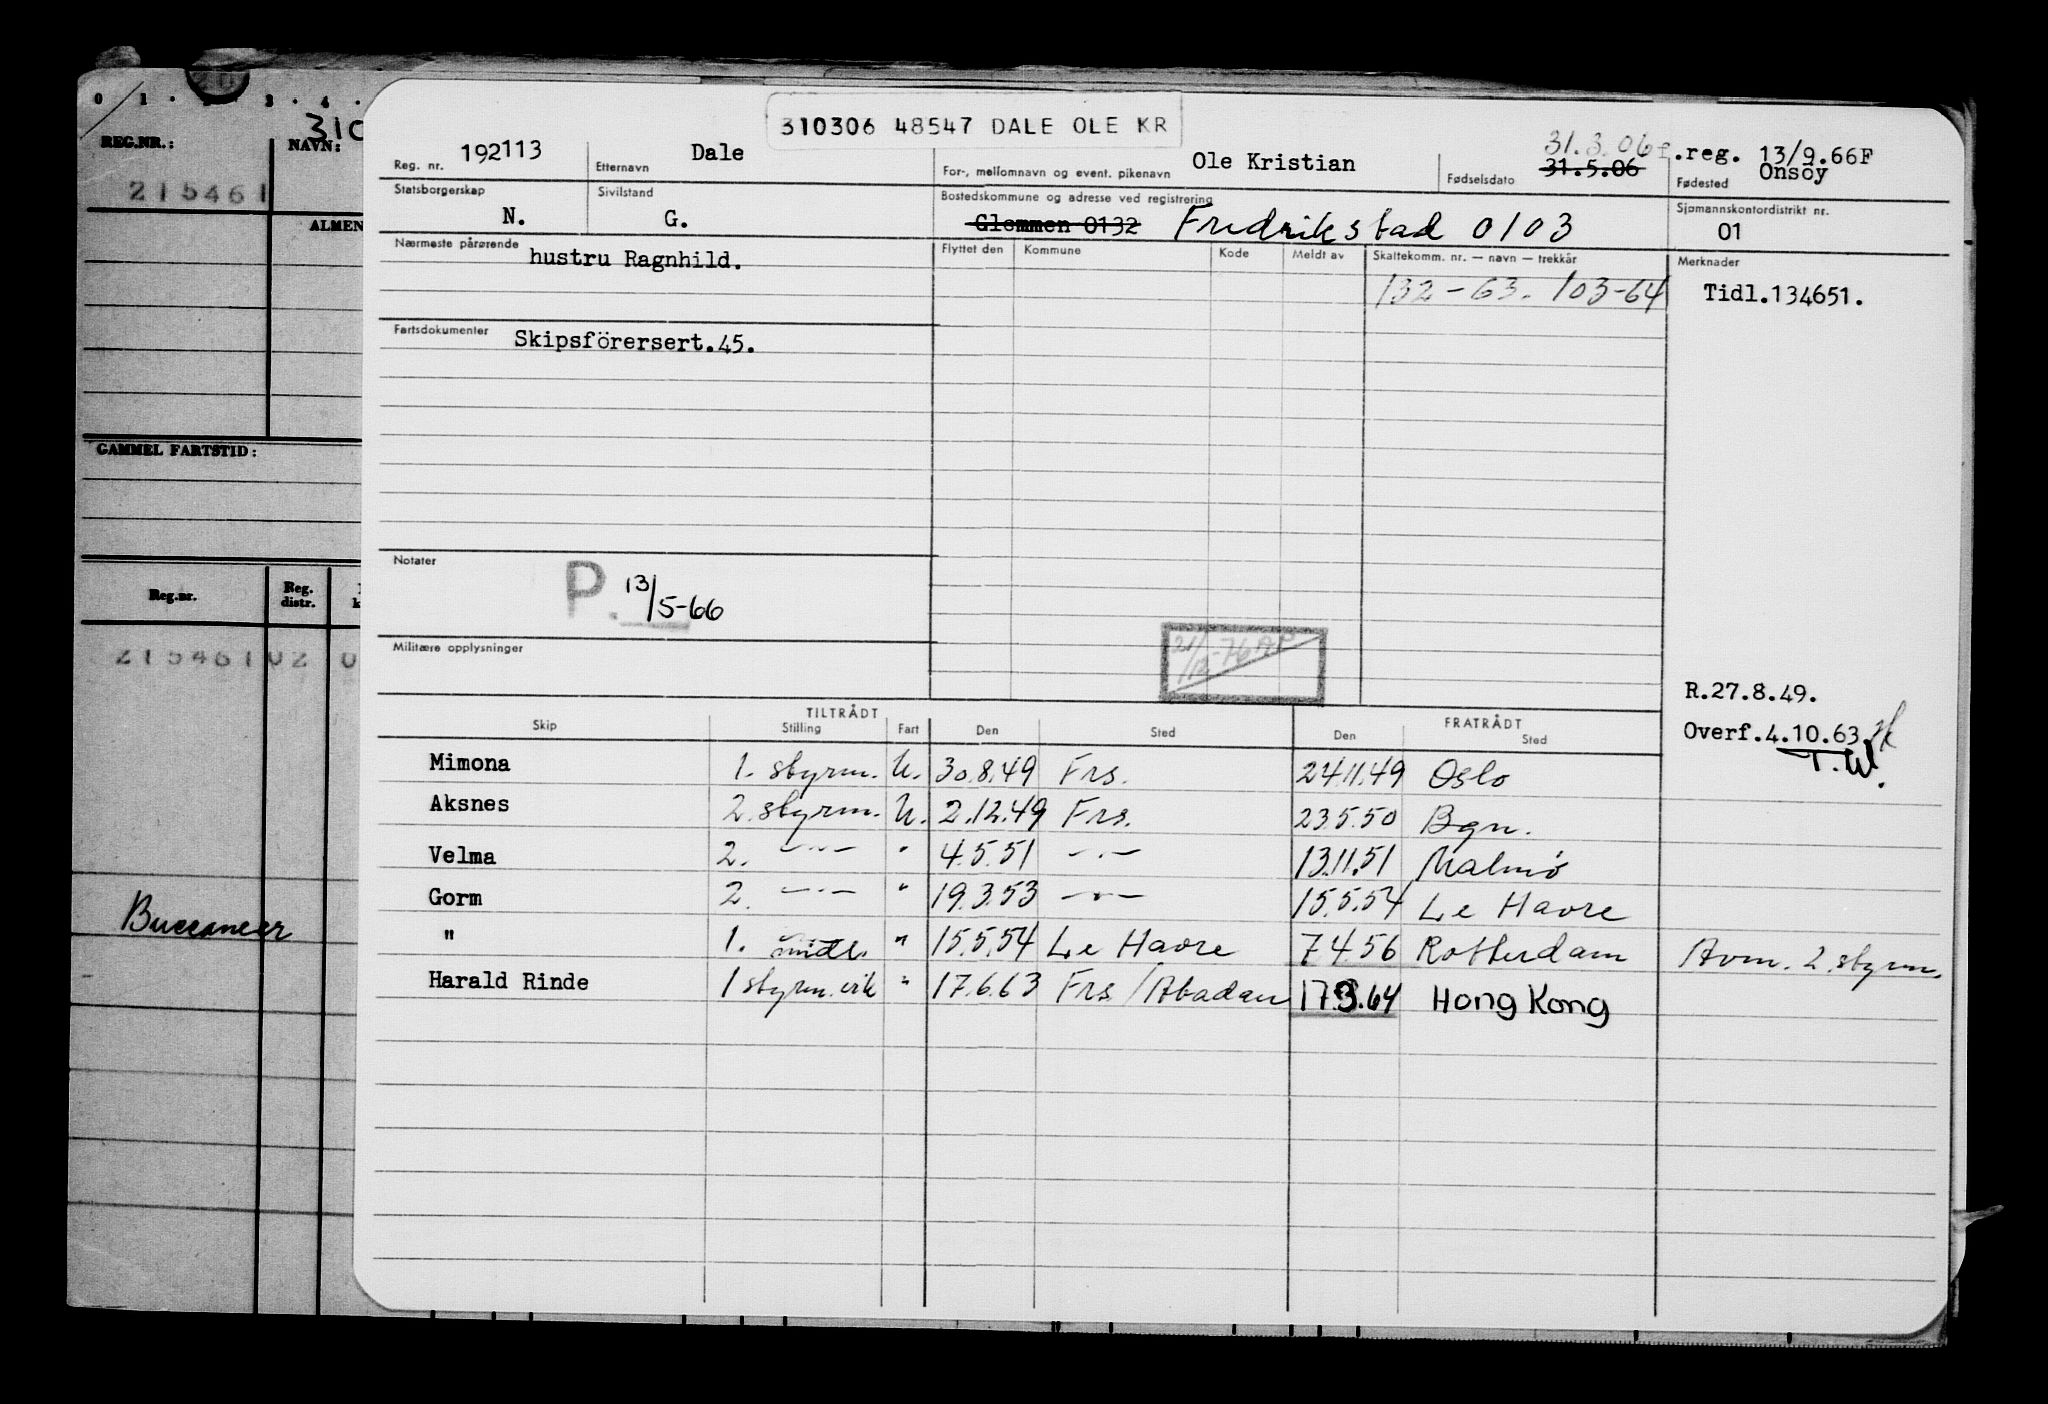 0 1 · 2 · 3 · 4 ·
REG.NR.:
NAVN: 310
215461
ALMEN
GAMMEL FARTSTID:
Reg.nr. Reg. distr.
215461 02 0
Buccaneer
310306 48547 DALE OLE KR
Reg. nr. 192113
Etternavn Dale
For-, mellomnavn og event. pikenavn Ole Kristian
Fødselsdato 31.3.06 31.5.06
f.reg. 13/9.66F
Fødested Onsöy
Statsborgerskap N.
Sivilstand G.
Bostedskommune og adresse ved registrering
Glemmen 0132 Fredrikstad 0103
Sjømannskontordistrikt nr.
01
Nærmeste pårørende hustru Ragnhild.
Flyttet den Kommune Kode Meldt av Skattekomm. nr. — navn — trekkår
132-63. 103-64
Merknader
Tidl.134651.
Fartsdokumenter Skipsförersert.45.
Notater
P. 13/5-66
21/12-76
Militære opplysninger
R.27.8.49.
Overf.4.10.63
T.W.
TILTRÅDT FRATRÅDT
Skip Stilling Fart Den Sted Den Sted
Mimona 1. styrm. U. 30.8.49 Frs. 24.11.49 Oslo
Aksnes 2. styrm. U. 2.12.49 Frs. 23.5.50 Bgn.
Velma 2. —"— " 4.5.51 —"— 13.11.51 Malmö
Gorm 2. —"— " 19.3.53 —"— 15.5.54 Le Havre
" 1. midl. " 15.5.54 Le Havre 7.4.56 Rotterdam Avm. 2. styrm.
Harald Rinde 1 styrm. vik " 17.6.63 Frs/Abadan 17.3.64 Hong Kong